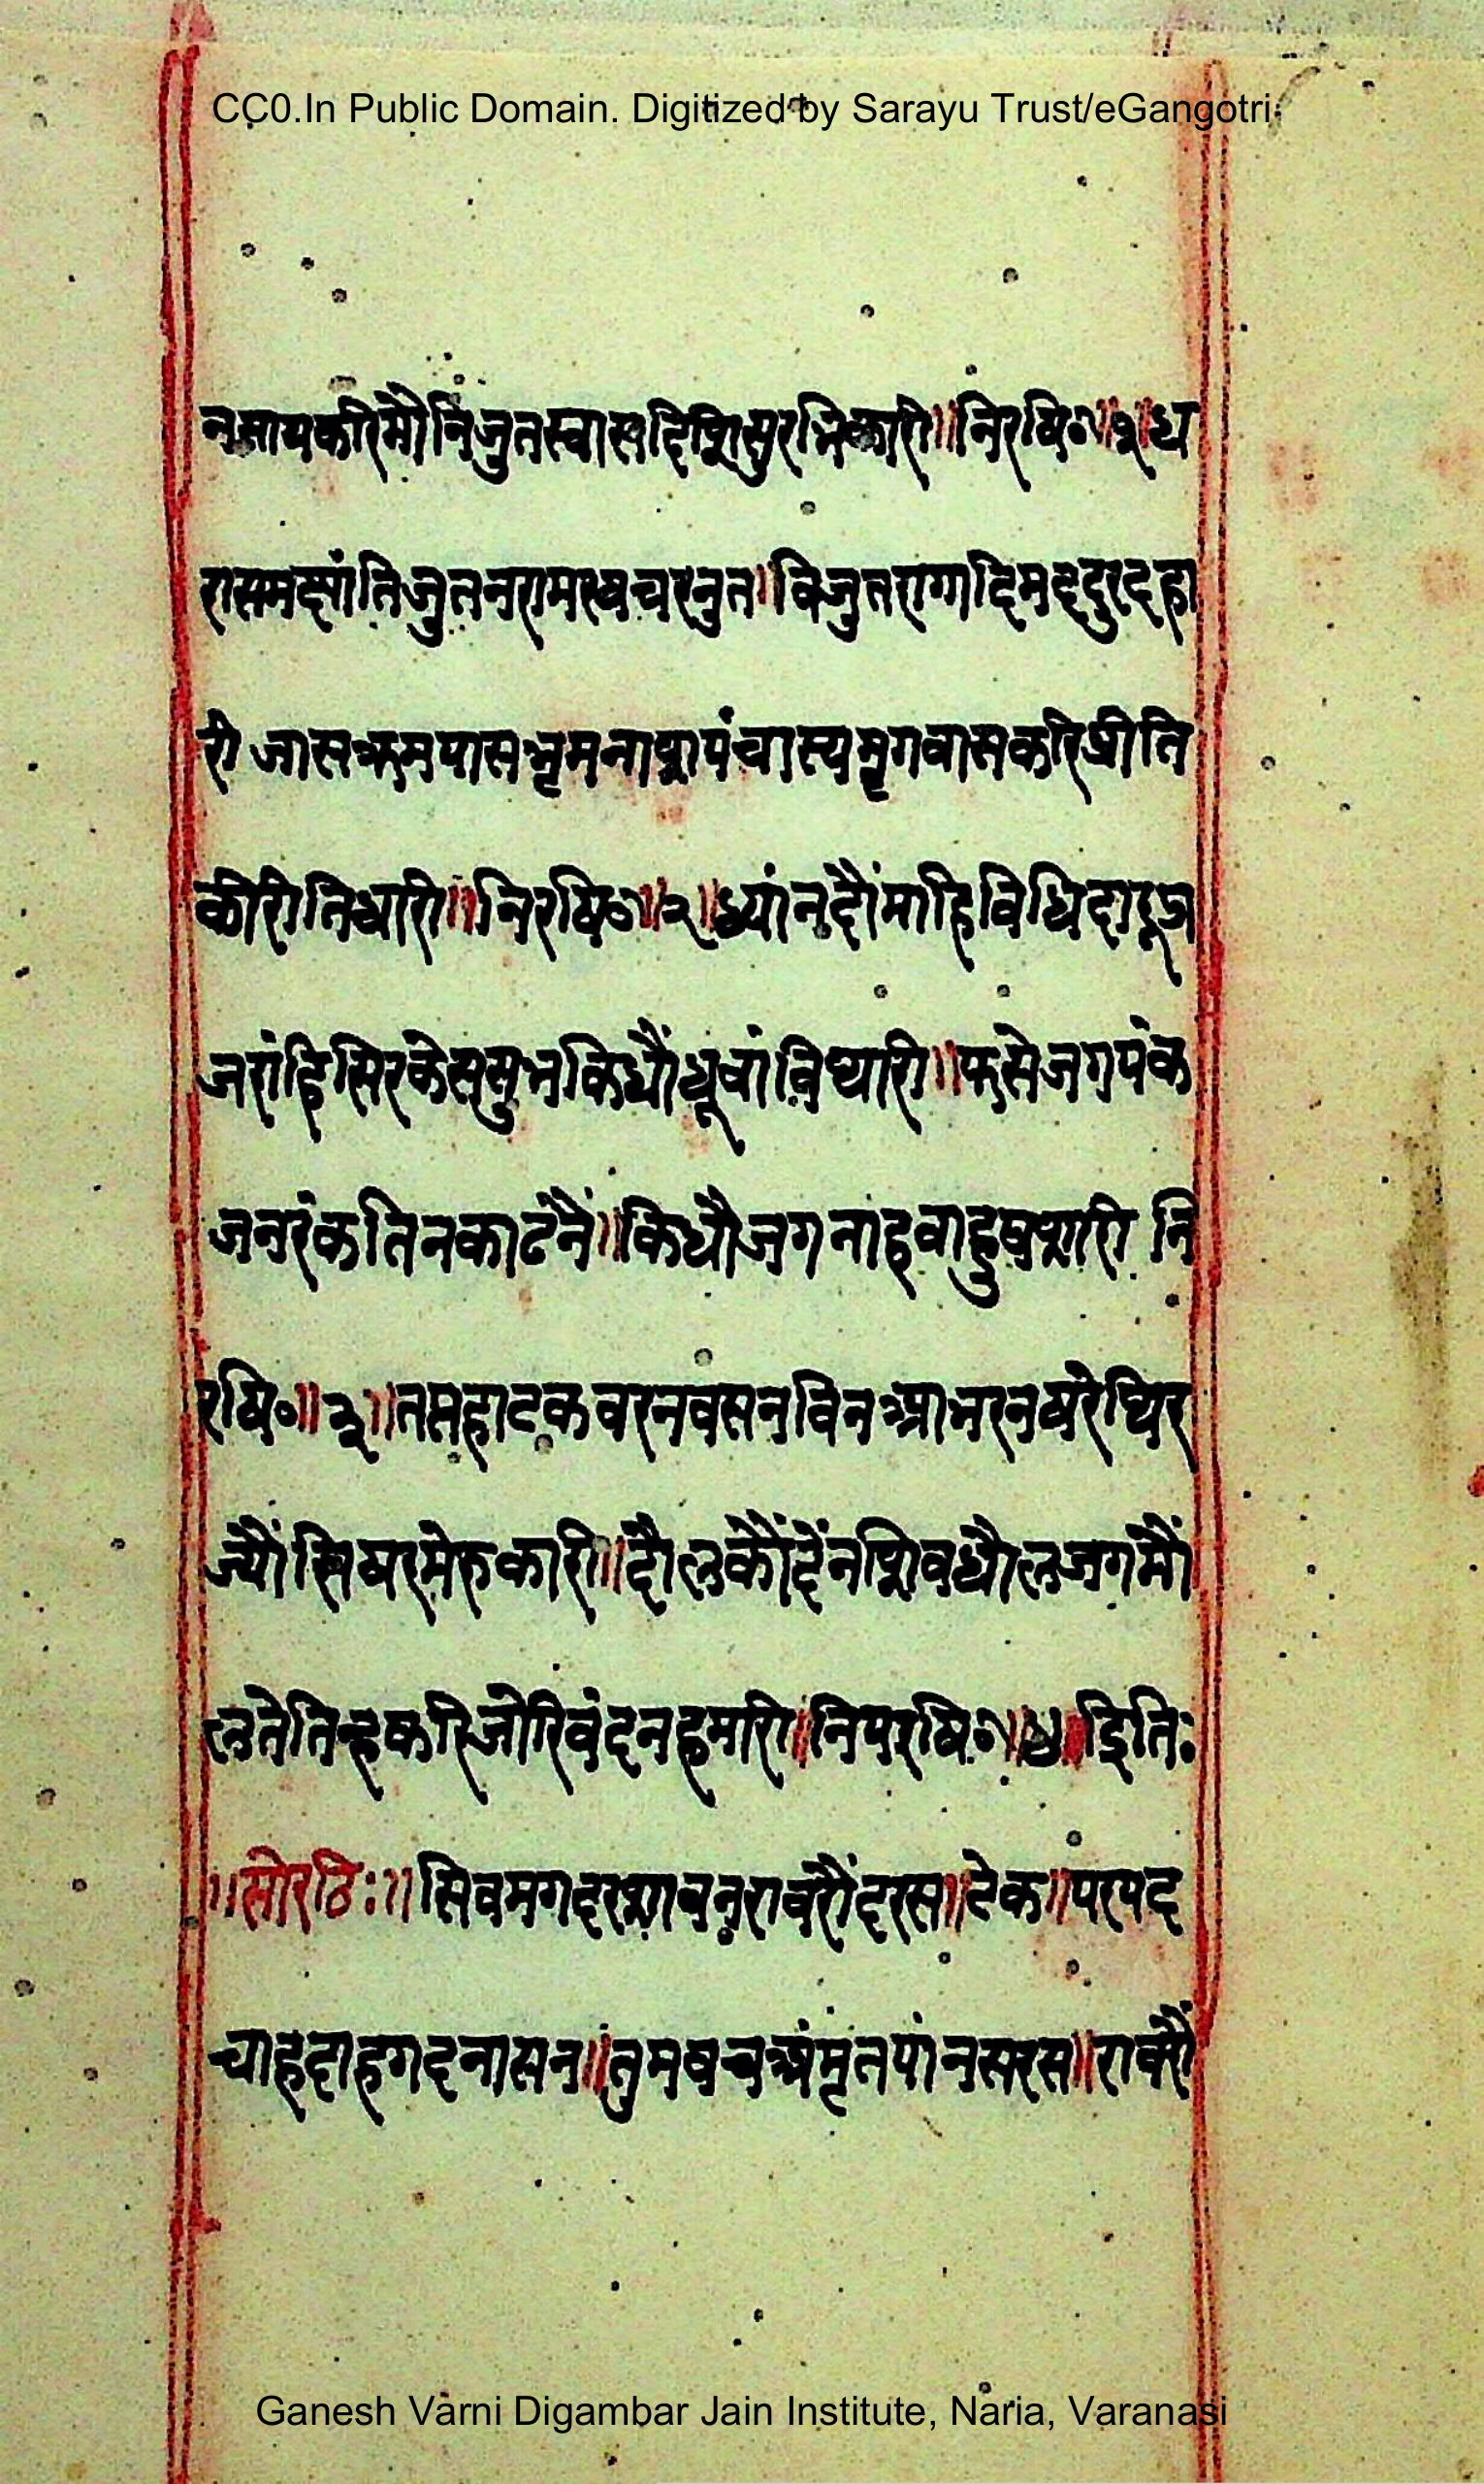 CC0.In Public Domain. Digitized by Sarayu Trust/eGangotri
नसायकरिमौनिजुतस्वासदिशिसुरभिकारी॥निरषि०॥१॥ध
रासमक्षांतिजुतनरामरषचरनुत॥विजुतरागादिमददुरदहा
री जासक्रमपासभ्रमनाशपंचास्यमृगवासकरिप्रीति
कीरीतिधारी॥निरषि०॥२॥ध्यांनदौंमाहिविधिदारूज
जरांहिसिरकेससुभकिधौंधूवांविथारी॥फसेजगपंक
जनरंकतिनकाढनें॥किधौजगनाहवाहुपशारी नि
रषि०॥३॥तसहाटकवरनवसनविनआभरनषरेथिर
ज्यौंसिषरमेरुकारी॥दौलकौंदेंनशिवधौलजगमौं
लतेतिन्हकरिजोरिवंदनहमारी॥निपरषि०॥४॥इिति:
॥सोरठि:॥सिवमगदरशावनरावरौंदरस॥टेक॥परपद
चाहदाहगदनासन॥तुमवचअंमृतपांनसरस॥रावरौं
Ganesh Varni Digambar Jain Institute, Naria, Varanasi